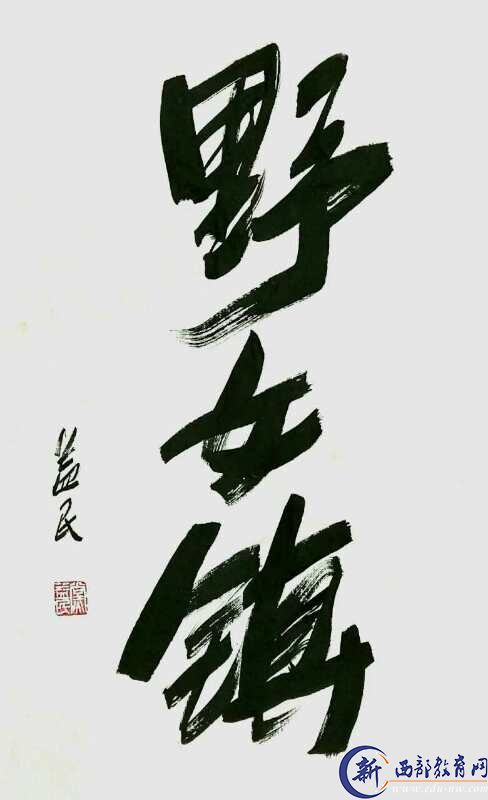 野女镇
益民
新 西部教育网
www.edu-nw.com